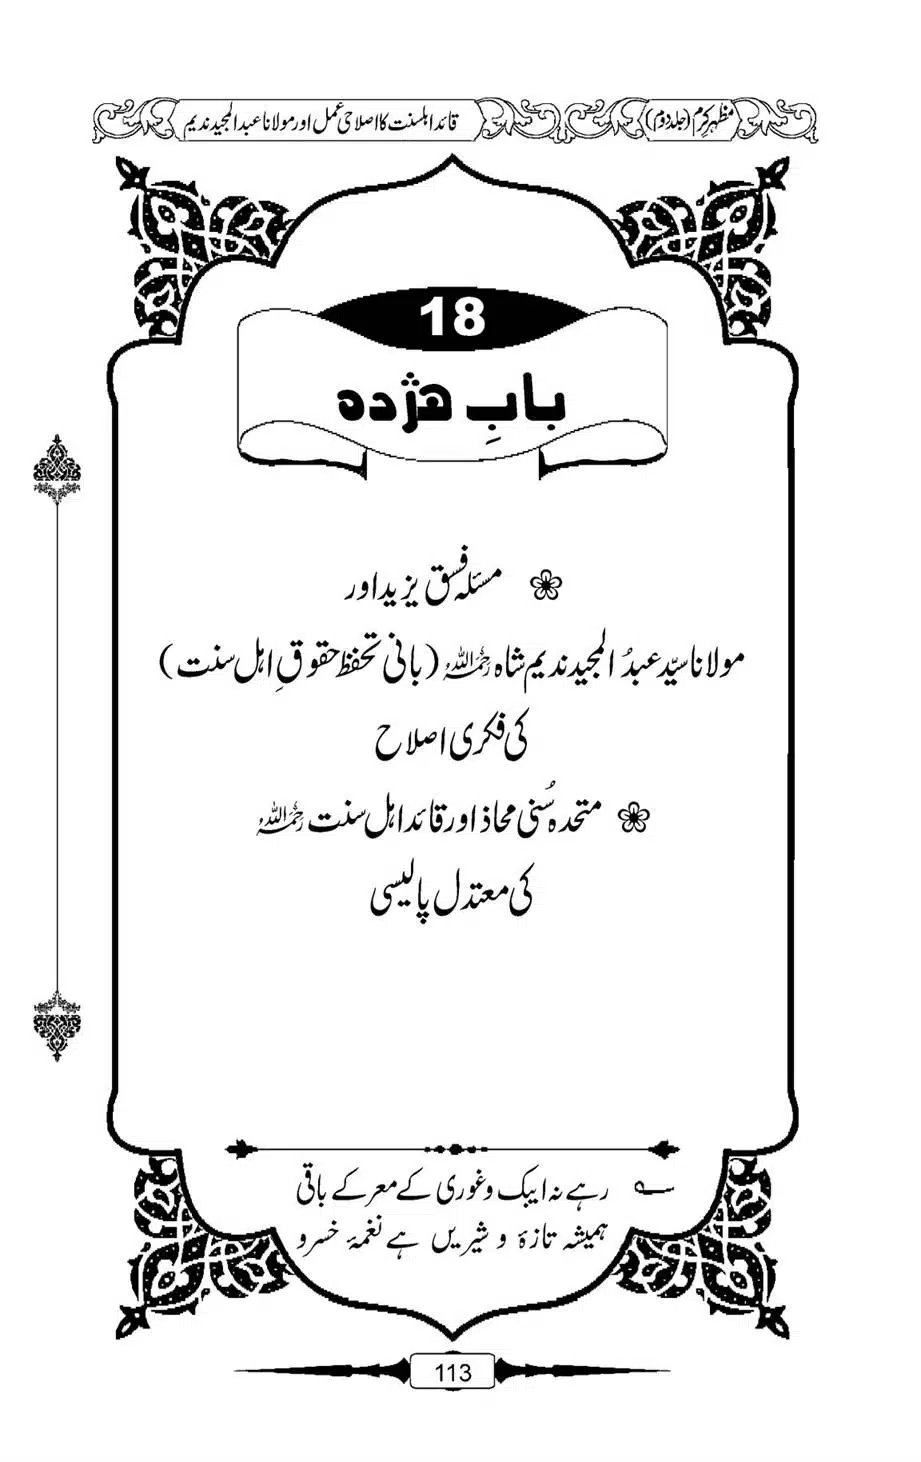 مظہرِ کرم (جلد دوم)
قائد اہلسنت کا اصلاحی عمل اور مولانا عبدالمجید ندیم
18
بابِ ھژدہ
مسئلہ فسق یزید اور
مولانا سیّد عبدُ المجید ندیم شاہ رحمہ اللہ (بانی تحفظ حقوقِ اہل سنت)
کی فکری اصلاح
متحدہ سُنی محاذ اور قائد اہل سنت رحمہ اللہ
کی معتدل پالیسی
رہے نہ ایبک و غوری کے معرکے باقی
ہمیشہ تازۂ و شیریں ہے نغمۂ خسرو
113